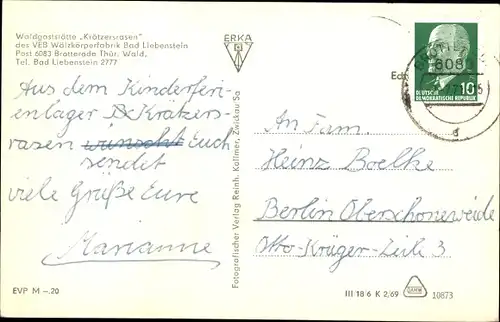 Waldgaststätte „Krätzersrasen"
des VEB Wälzkörperfabrik Bad Liebenstein
Post 6083 Brotterode Thür. Wald,
Tel. Bad Liebenstein 2777
ERKA
DEUTSCHE
DEMOKRATISCHE REPUBLIK 10
Aus dem Kinderferi-
enlager Krätzers-
rasen wünscht Euch
sendet
viele Grüße Eure
Marianne
An Fam.
Heinz Boelke
Berlin Oberschöneweide
Otto-Krüger-Zeile 3
Fotografischer Verlag Reinh. Kallmer, Zwickau/Sa
EVP M –.20
III 18 6 K 2/69
10873